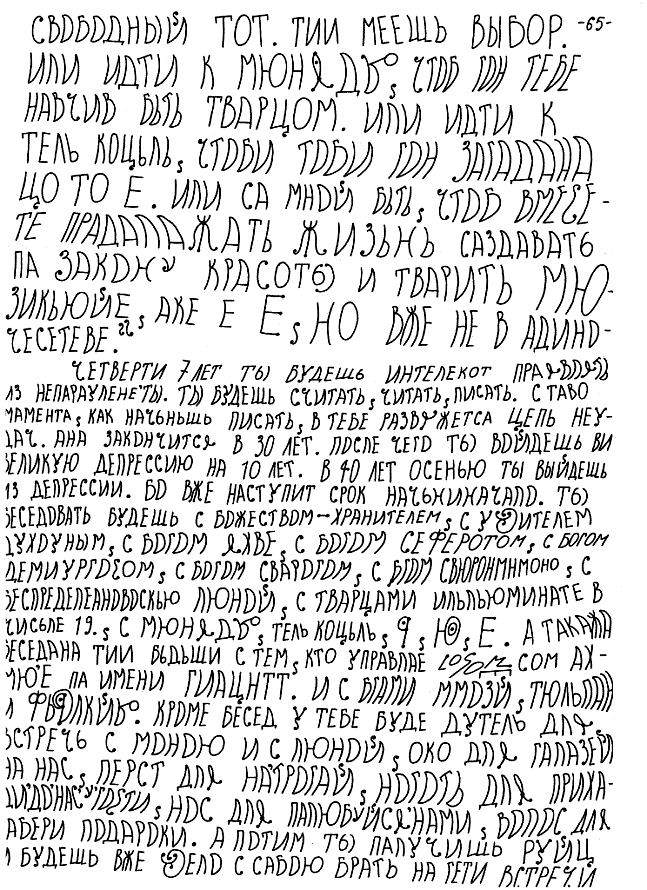 СВОБОДНЫЙ ТОТ. ТИИ МЕЕЩЬ ВЫБОР. -65-
ИЛИ ИДТИ К ЧТОБ ГОН ТЕБЕ
НАВЧИВ БЫТЬ ТВАРЦОМ. ИЛИ ИДТИ К
ТЕЛЬ КОЦЬЛЬ, ЧТОБИ ТОБИ ГОН ЗАГАДАНА
ЦО ТО Е. ИЛИ СА МНОЙ БЫТЬ, ЧТОБ ВМЕСЕ-
ТЕ ЖИЗЬНЬ САЗДАВАТЬ
ПА ЗАКОНУ КРАСОТЫ И ТВАРИТЬ МЮ-
ЗИКЬЮЙЕ, АКЕ Е Е, НО ВЖЕ НЕ В АДИНО-
ЧЕСЕТЕВЕ."
ЧЕТВЕРТИ 7 ЛЕТ ТЫ БУДЕШЬ ИНТЕЛЕКОТ
ИЗ ТЫ БУДЕШЬ СЧИТАТЬ, ЧИТАТЬ, ПИСАТЬ. С ТАВО
МАМЕНТА, КАК НАЧЬНЬШЬ ПИСАТЬ, В ТЕБЕ РАЗВУЖЕТСА ЦЕПЬ НЕУ-
ДАЧ. АНА ЗАКОНЧИТСЯ В 30 ЛЕТ. ПОСЛЕ ЧЕГО ТЫ ВОЙДЕШЬ ВИ
ВЕЛИКУЮ ДЕПРЕССИЮ НА 10 ЛЕТ. В 40 ЛЕТ ОСЕНЬЮ ТЫ ВЫЙДЕШЬ
ИЗ ДЕПРЕССИИ. БО ВЖЕ НАСТУПИТ СРОК НАЧЬНИНАЧАЛО. ТЫ
БЕСЕДОВАТЬ БУДЕШЬ С БОЖЕСТВОМ-ХРАНИТЕЛЕМ, С УЧИТЕЛЕМ
ДУХОУНЫМ, С БОГОМ ЯХВЕ, С БОГОМ СЕФЕРОТОМ, С БОГОМ
ДЕМИУРГОГОМ, С БОГОМ СВАРОГОМ, С БГОМ С
ЛЮНОЙ, С ТВАРЦАМИ ИЛЬЛЬЮМИНАТЕ В
ЧИСЬЛЕ 19., С ТЕЛЬ КОЦЬЛЬ, Я, Ю, Е. А ТАКАЖА
БЕСЕДАНА ТИИ БЬДЬШИ С ТЕМ, КТО УПРАВЛАЕ СОМ АХ-
ПА ИМЕНИ ГИАЦНТТ. И С БГАМИ ММОЗЙ, ТЮЛЬПАН
И КРОМЕ БЕСЕД У ТЕБЕ БУДЕ ДУТЕЛЬ ДЛЯ
ВСТРЕЧЬ С МОНОЮ И С ЛЮНОЙ, ОКО ДЛЯ ГАЛАЗЕЙ
НА НАС, ПЕРСТ ДЛЯ НАТРОГАЙ, НОГОТЬ ДЛЯ ПРИХА-
НОС ДЛЯ ВОЛОС ДЛЯ
ЗАБЕРИ ПОДАРОКИ. А ПОТИМ ТЫ ПАЛУЧИШЬ РУЙЦ
И БУДЕШЬ ВЖЕ С САБОЮ БРАТЬ НА ГЕТИ ВСТРЕЧЙ